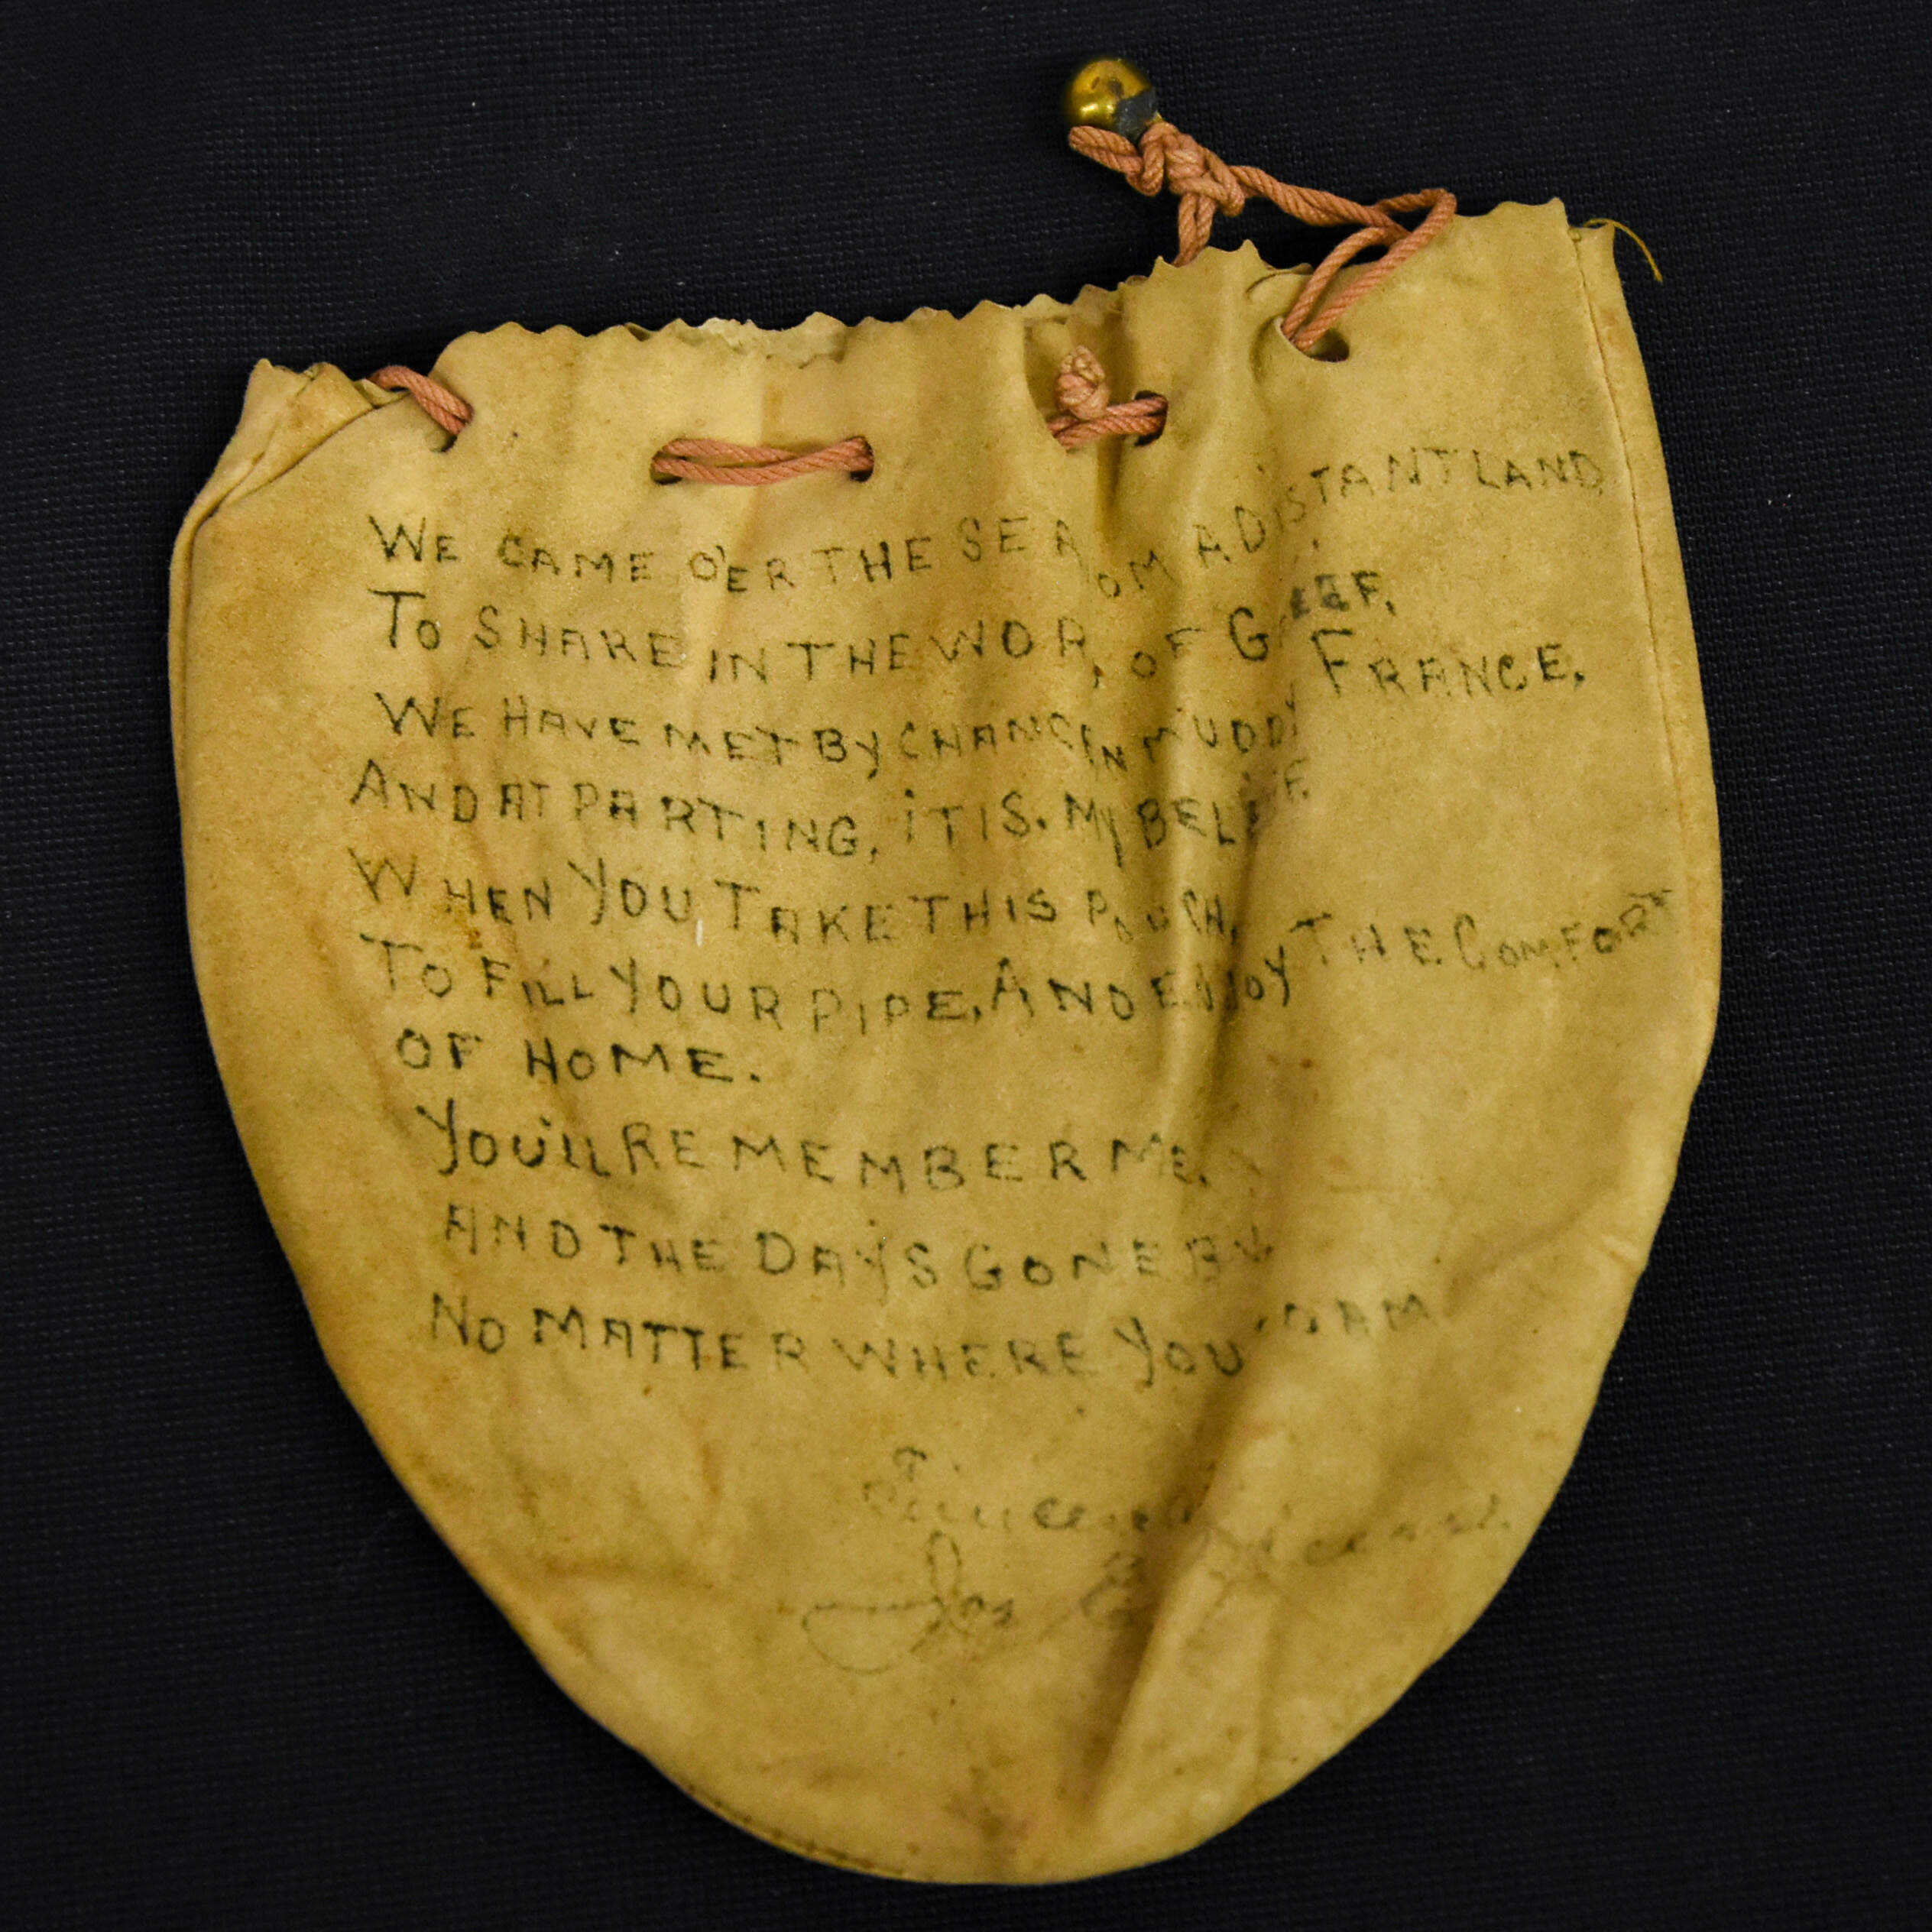 WE CAME O'ER THE SEA FROM A DISTANT LAND
TO SHARE IN THE WORK OF GRIEF,
WE HAVE MET BY CHANCE IN MUDDY FRANCE.
AND AT PARTING, iT IS. MY BELIEF.
WHEN YOU TAKE THIS POUCH,
TO FILL YOUR PIPE, AND ENJOY THE COMFORT
OF HOME.
YOU'LL REMEMBER ME.
AND THE DAYS GONE BY.
NO MATTER WHERE YOU ROAM
Sincerely
Jos E